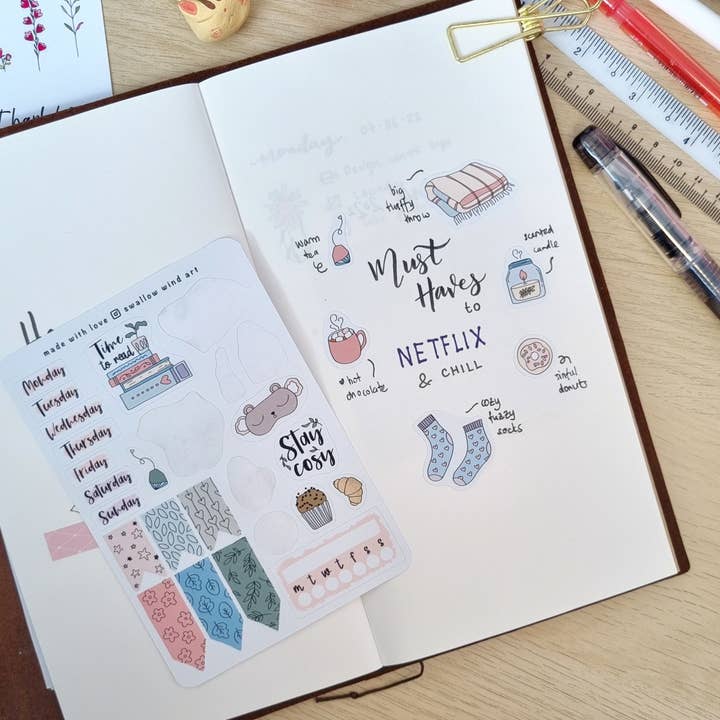 Thank
made with love swallow wind art
Monday
Tuesday
Wednesday
Thursday
Friday
Saturday
Sunday
Time
to read
Stay
cosy
m t w t f s s
Monday
big
fluffy
throw
warm
tea
scented
candle
Must
Haves
to
NETFLIX
& CHILL
hot
chocolate
sinful
donuts
cozy
fuzzy
socks